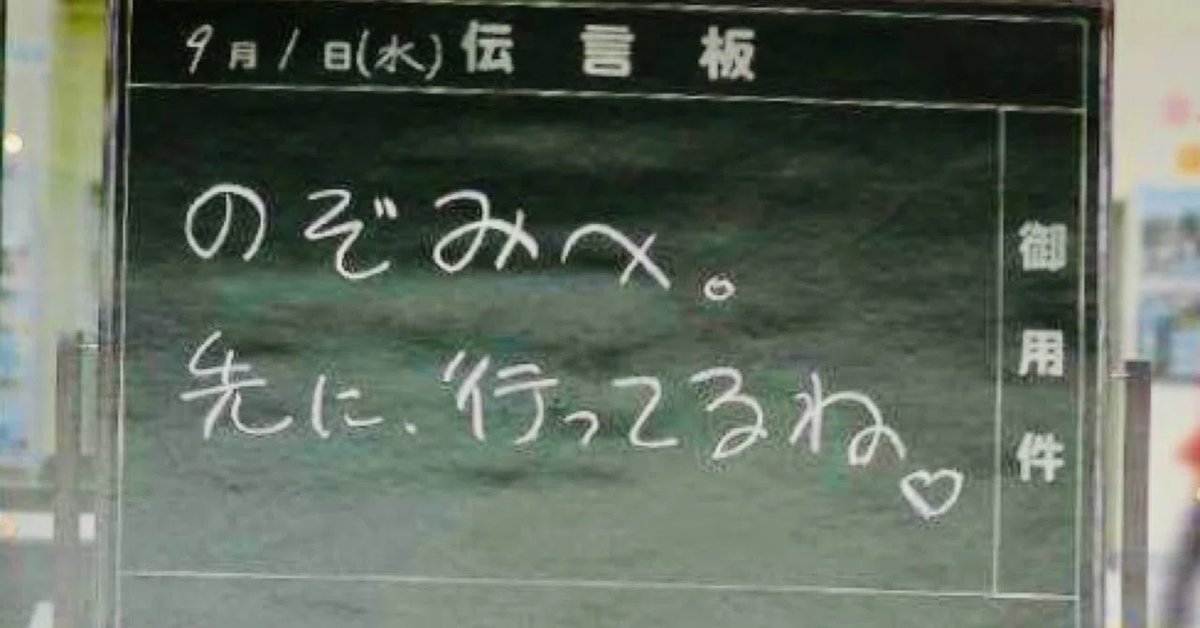 9月1日(水)伝言板
のぞみへ。
先に、行ってるね♡
御用件